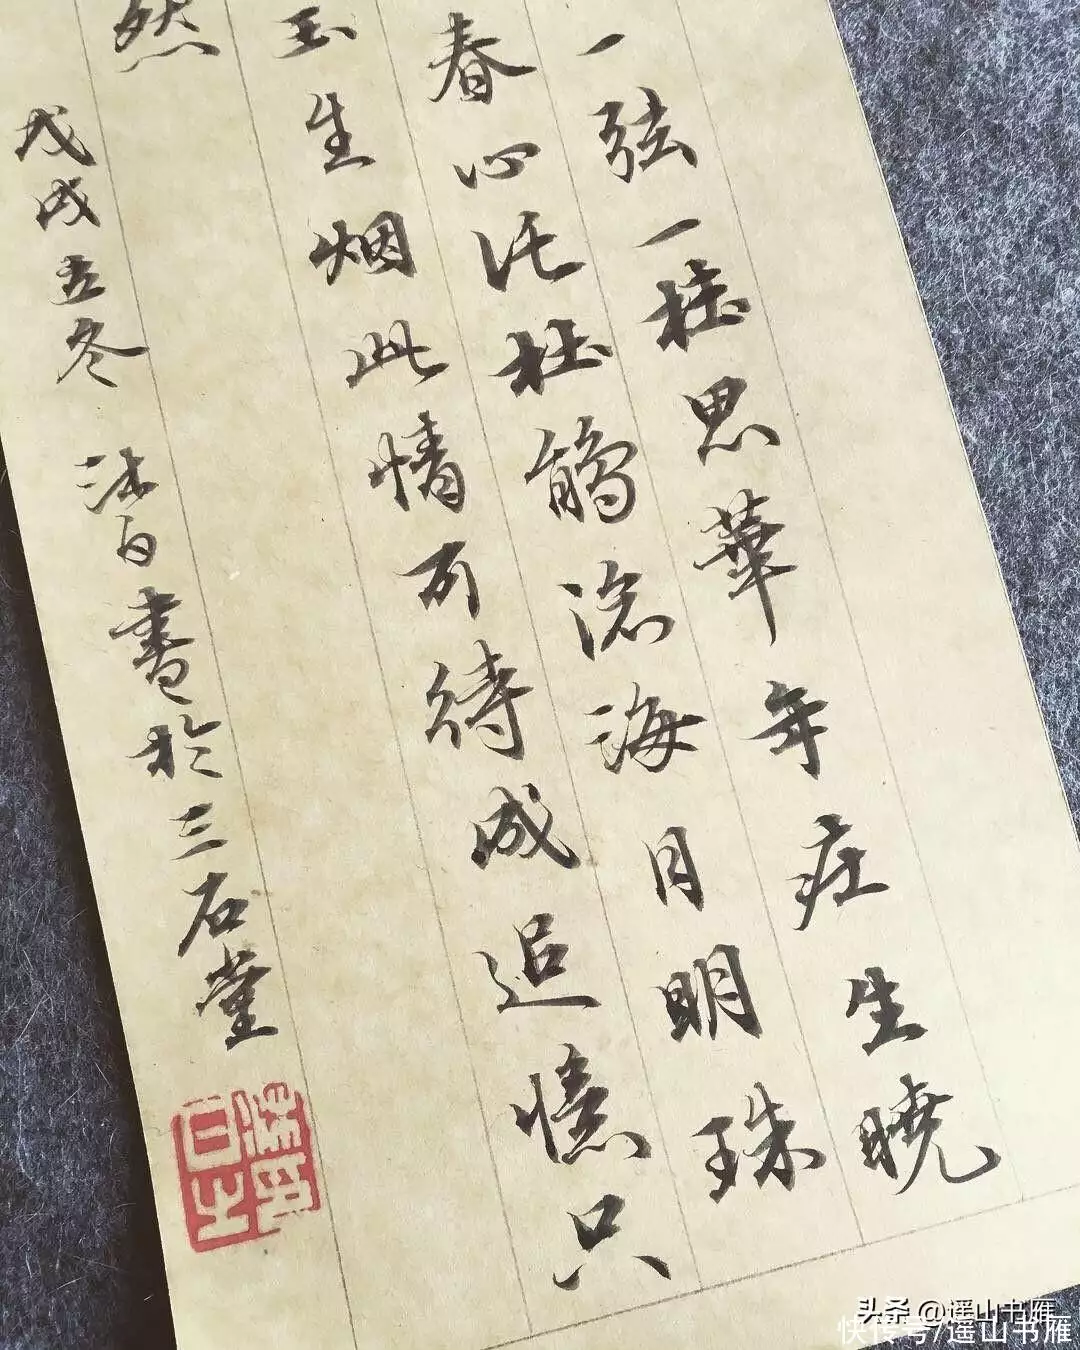 一弦一柱思華年庄生晓
春心托杜鹃沧海月明珠
玉生烟此情可待成追憶只
然
戊戌立冬 白書於三石堂
头条 @遥山书雁
快传号/遥山书雁